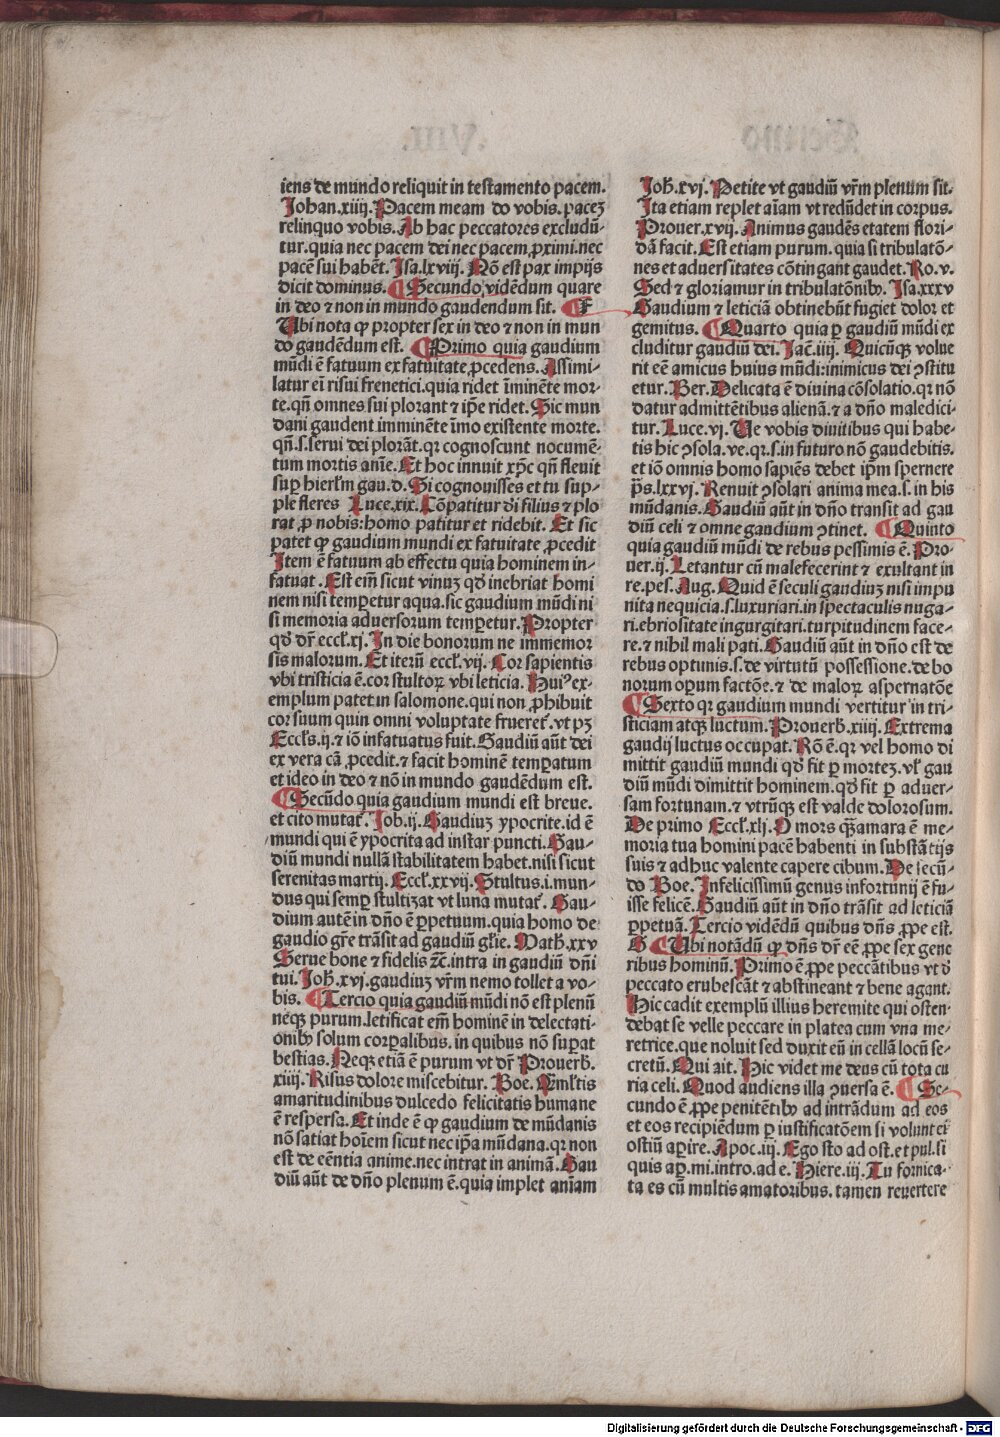 iens de mundo reliquit in testamento pacem.
Johan.xiiij.Pacem meam do vobis.pacez
relinquo vobis.Ab hac peccatores excludũ-
tur.quia nec pacem dei nec pacem ꝓximi.nec
pacē sui habēt.Isa.lxviij.Nō est pax impijs
dicit dominus. ¶ Secundo videndum quare
in deo ⁊ non in mundo gaudendum sit. ¶ F
Ubi nota ꝙ propter sex in deo ⁊ non in mun
do gaudēdum est. ¶ Primo quia gaudium
mũdi ē fatuum ex fatuitate ꝓcedens.Assimi-
latur eī risui frenetici.quia ridet ĩminēte mor-
te.qñ omnes sui plorant ⁊ ip̄e ridet.Sic mun
dani gaudent imminēte ĩmo existente morte.
qñ.s.serui dei plorāt.qr cognoscunt nocumē-
tum mortis anīe.Et hoc innuit xp̄c qñ fleuit
suꝑ hierl̄m gau.d.Si cognouisses et tu sup-
ple fleres Luce.xix.Cōpatitur d̄i filius ⁊ plo
rat ꝓ nobis:homo patitur et ridebit. Et sic
patet ꝙ gaudium mundi ex fatuitate ꝓcedit
Item ē fatuum ab effectu quia hominem in-
fatuat.Est em̄ sicut vinuz qd̄ inebriat homi
nem nisi temꝑetur aqua.sic gaudium mũdi ni
si memoria aduersorum temꝑetur.Propter
qd̄ dr̄ eccl̄.xj.In die bonorum ne immemor
sis malorum.Et iterũ eccl̄.vij.Cor sapientis
vbi tristicia ē.cor stultoꝝ vbi leticia.Huiꝰ ex-
emplum patet in salomone.qui non ꝓhibuit
cor suum quin omni voluptate frueret̄.vt pꝫ
Eccl̄s.ij.⁊ iō infatuatus fuit.Gaudiũ aũt dei
ex vera cā ꝓcedit.⁊ facit hominē temꝑatum
et ideo in deo ⁊ nō in mundo gaudēdum est.
¶ Secũdo quia gaudium mundi est breue.
et cito mutat̄.Job.ij.Gaudiuz ypocrite.id ē
mundi qui ē ypocrita ad instar puncti.Gau-
diũ mundi nullā stabilitatem habet.nisi sicut
serenitas martij.Eccl̄.xxvij.Stultus.i.mun-
dus qui semꝑ stultizat vt luna mutat̄.Gau-
dium autē in dño ē ꝑpetuum.quia homo de
gaudio gr̄e trāsit ad gaudiũ gl̄ie.Math.xxv
Serue bone ⁊ fidelis ⁊c̄.intra in gaudiũ dñi
tui.Joh̄.xvj.gaudiuz vr̄m nemo tollet a vo-
bis. ¶ Tercio quia gaudiũ mũdi nō est plenũ
neqꝫ purum.letificat em̄ hominē in delectati-
onibꝰ solum corꝑalibus.in quibus nō suꝑat
bestias.Neqꝫ etiā ē purum vt dr̄ Prouerb.
xiiij.Risus dolore miscebitur.Boe.Qm̄ltis
amaritudinibus dulcedo felicitatis humane
ē respersa.Et inde ē ꝙ gaudium de mũdanis
nō satiat hoīem sicut nec ip̄a mũdana.qr non
est de eēntia anime.nec intrat in animā.Gau
diũ aũt de dño plenum ē.quia implet aniam
Joh̄.xvj.Petite vt gaudiũ vr̄m plenum sit.
Ita etiam replet aīam vt redũdet in corpus.
Prouer.xvij.Animus gaudēs etatem flori-
dā facit.Est etiam purum.quia si tribulatō-
nes et aduersitates cōtingant gaudet.Ro.v.
Sed ⁊ gloriamur in tribulatōnibꝰ.Isa.xxxv
Gaudium ⁊ leticiā obtinebũt fugiet dolor et
gemitus. ¶ Quarto quia ꝑ gaudiũ mũdi ex
cluditur gaudiũ dei.Jac̄.iiij.Quicũqꝫ volue
rit eē amicus huius mũdi:inimicus dei ꝯstitu
etur.Ber.Delicata ē diuina cōsolatio.qr nō
datur admittētibus alienā.⁊ a dño maledici-
tur.Luce.vj.Ue vobis diuitibus qui habe-
tis hic ꝯsola.ve.qr.s.in futuro nō gaudebitis.
et iō omnis homo sapiēs debet ip̄m spernere
p̄s.lxxvj.Renuit ꝯsolari anima mea.s.in his
mũdanis.Gaudiũ aũt in dño transit ad gau
diũ celi ⁊ omne gaudium ꝯtinet. ¶ Quinto
quia gaudiũ mũdi de rebus pessimis ē.Pro-
uer.ij.Letantur cũ malefecerint ⁊ exultant in
re.pes.Aug.Quid ē seculi gaudiuz nisi impu
nita nequicia.s.luxuriari.in spectaculis nuga-
ri.ebriositate ingurgitari.turpitudinem face-
re.⁊ nihil mali pati.Gaudiũ aũt in dño est de
rebus optimis.s.de virtutũ possessione.de bo
norum oꝑum factōe.⁊ de maloꝝ aspernatōe
¶ Sexto qr gaudium mundi vertitur in tri-
sticiam atqꝫ luctum.Prouerb.xiiij.Extrema
gaudij luctus occupat.Rō ē.qr vel homo di
mittit gaudiũ mundi qd̄ fit ꝑ mortez.vl̄ gau
diũ mũdi dimittit hominem.qd̄ fit ꝑ aduer-
sam fortunam.⁊ vtrũqꝫ est valde dolorosum.
De primo Eccl̄.xlj.O mors q̄ amara ē me-
moria tua homini pacē habenti in substātijs
suis ⁊ adhuc valente capere cibum.De secũ-
do Boe.Infelicissimũ genus infortunij ē fu-
isse felicē.Gaudiũ aũt in dño trāsit ad leticiā
ꝑpetuā.Tercio vidēdũ quibus dñs ꝓpe est.
G ¶ Ubi notādũ ꝙ dñs dr̄ eē ꝓpe sex gene
ribus hominũ.Primo ē ꝓpe peccātibus vt d̄
peccato erubescāt ⁊ abstineant ⁊ bene agant.
Hic cadit exemplũ illius heremite qui osten-
debat se velle peccare in platea cum vna me-
retrice.que noluit sed duxit eũ in cellā locũ se-
cretũ.Qui ait.Hic videt me deus cũ tota cu
ria celi.Quod audiens illa ꝯuersa ē. ¶ Se-
cundo ē ꝓpe penitētibꝰ ad intrādum ad eos
et eos recipiēdum ꝑ iustificatōem si voluntet̄
ostiũ aꝑire.Apoc.iij.Ego sto ad ost.et pul.si
quis aꝑ.mi.intro.ad e.Hiere.iij.Tu fornica-
ta es cũ multis amatoribus.tamen reuertere
Digitalisierung gefördert durch die Deutsche Forschungsgemeinschaft - DFG